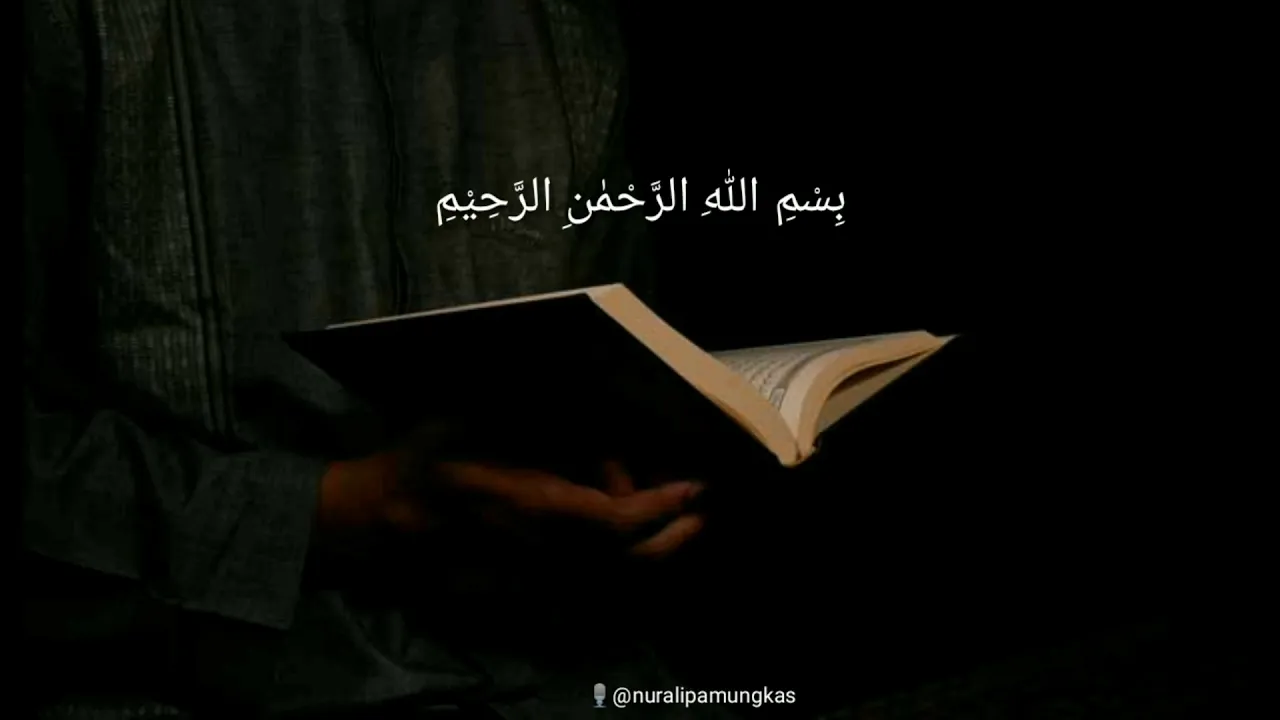 بِسْمِ اللّٰهِ الرَّحْمٰنِ الرَّحِيْمِ
🎙️@nuralipamungkas